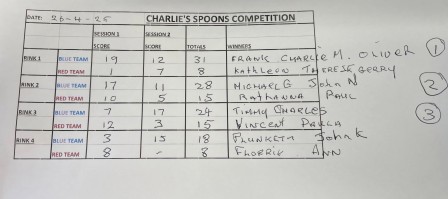 DATE: 26-4-25 CHARLIE'S SPOONS COMPETITION
SESSION 1 SESSION 2
SCORE SCORE TOTALS WINNERS
RINK 1 BLUE TEAM 19 12 31 FRANK CHARLIE M. OLIVER 1
RED TEAM 1 7 8 Kathleen THERESE GERRY
RINK 2 BLUE TEAM 17 11 28 MICHAEL G John N 2
RED TEAM 10 5 15 RATHANNA PAUL
RINK 3 BLUE TEAM 7 17 24 TIMMY CHARLES 3
RED TEAM 12 3 15 VINCENT PAULA
RINK 4 BLUE TEAM 3 15 18 PLUNKETT John K
RED TEAM 8 - 8 FLORRIE ANN